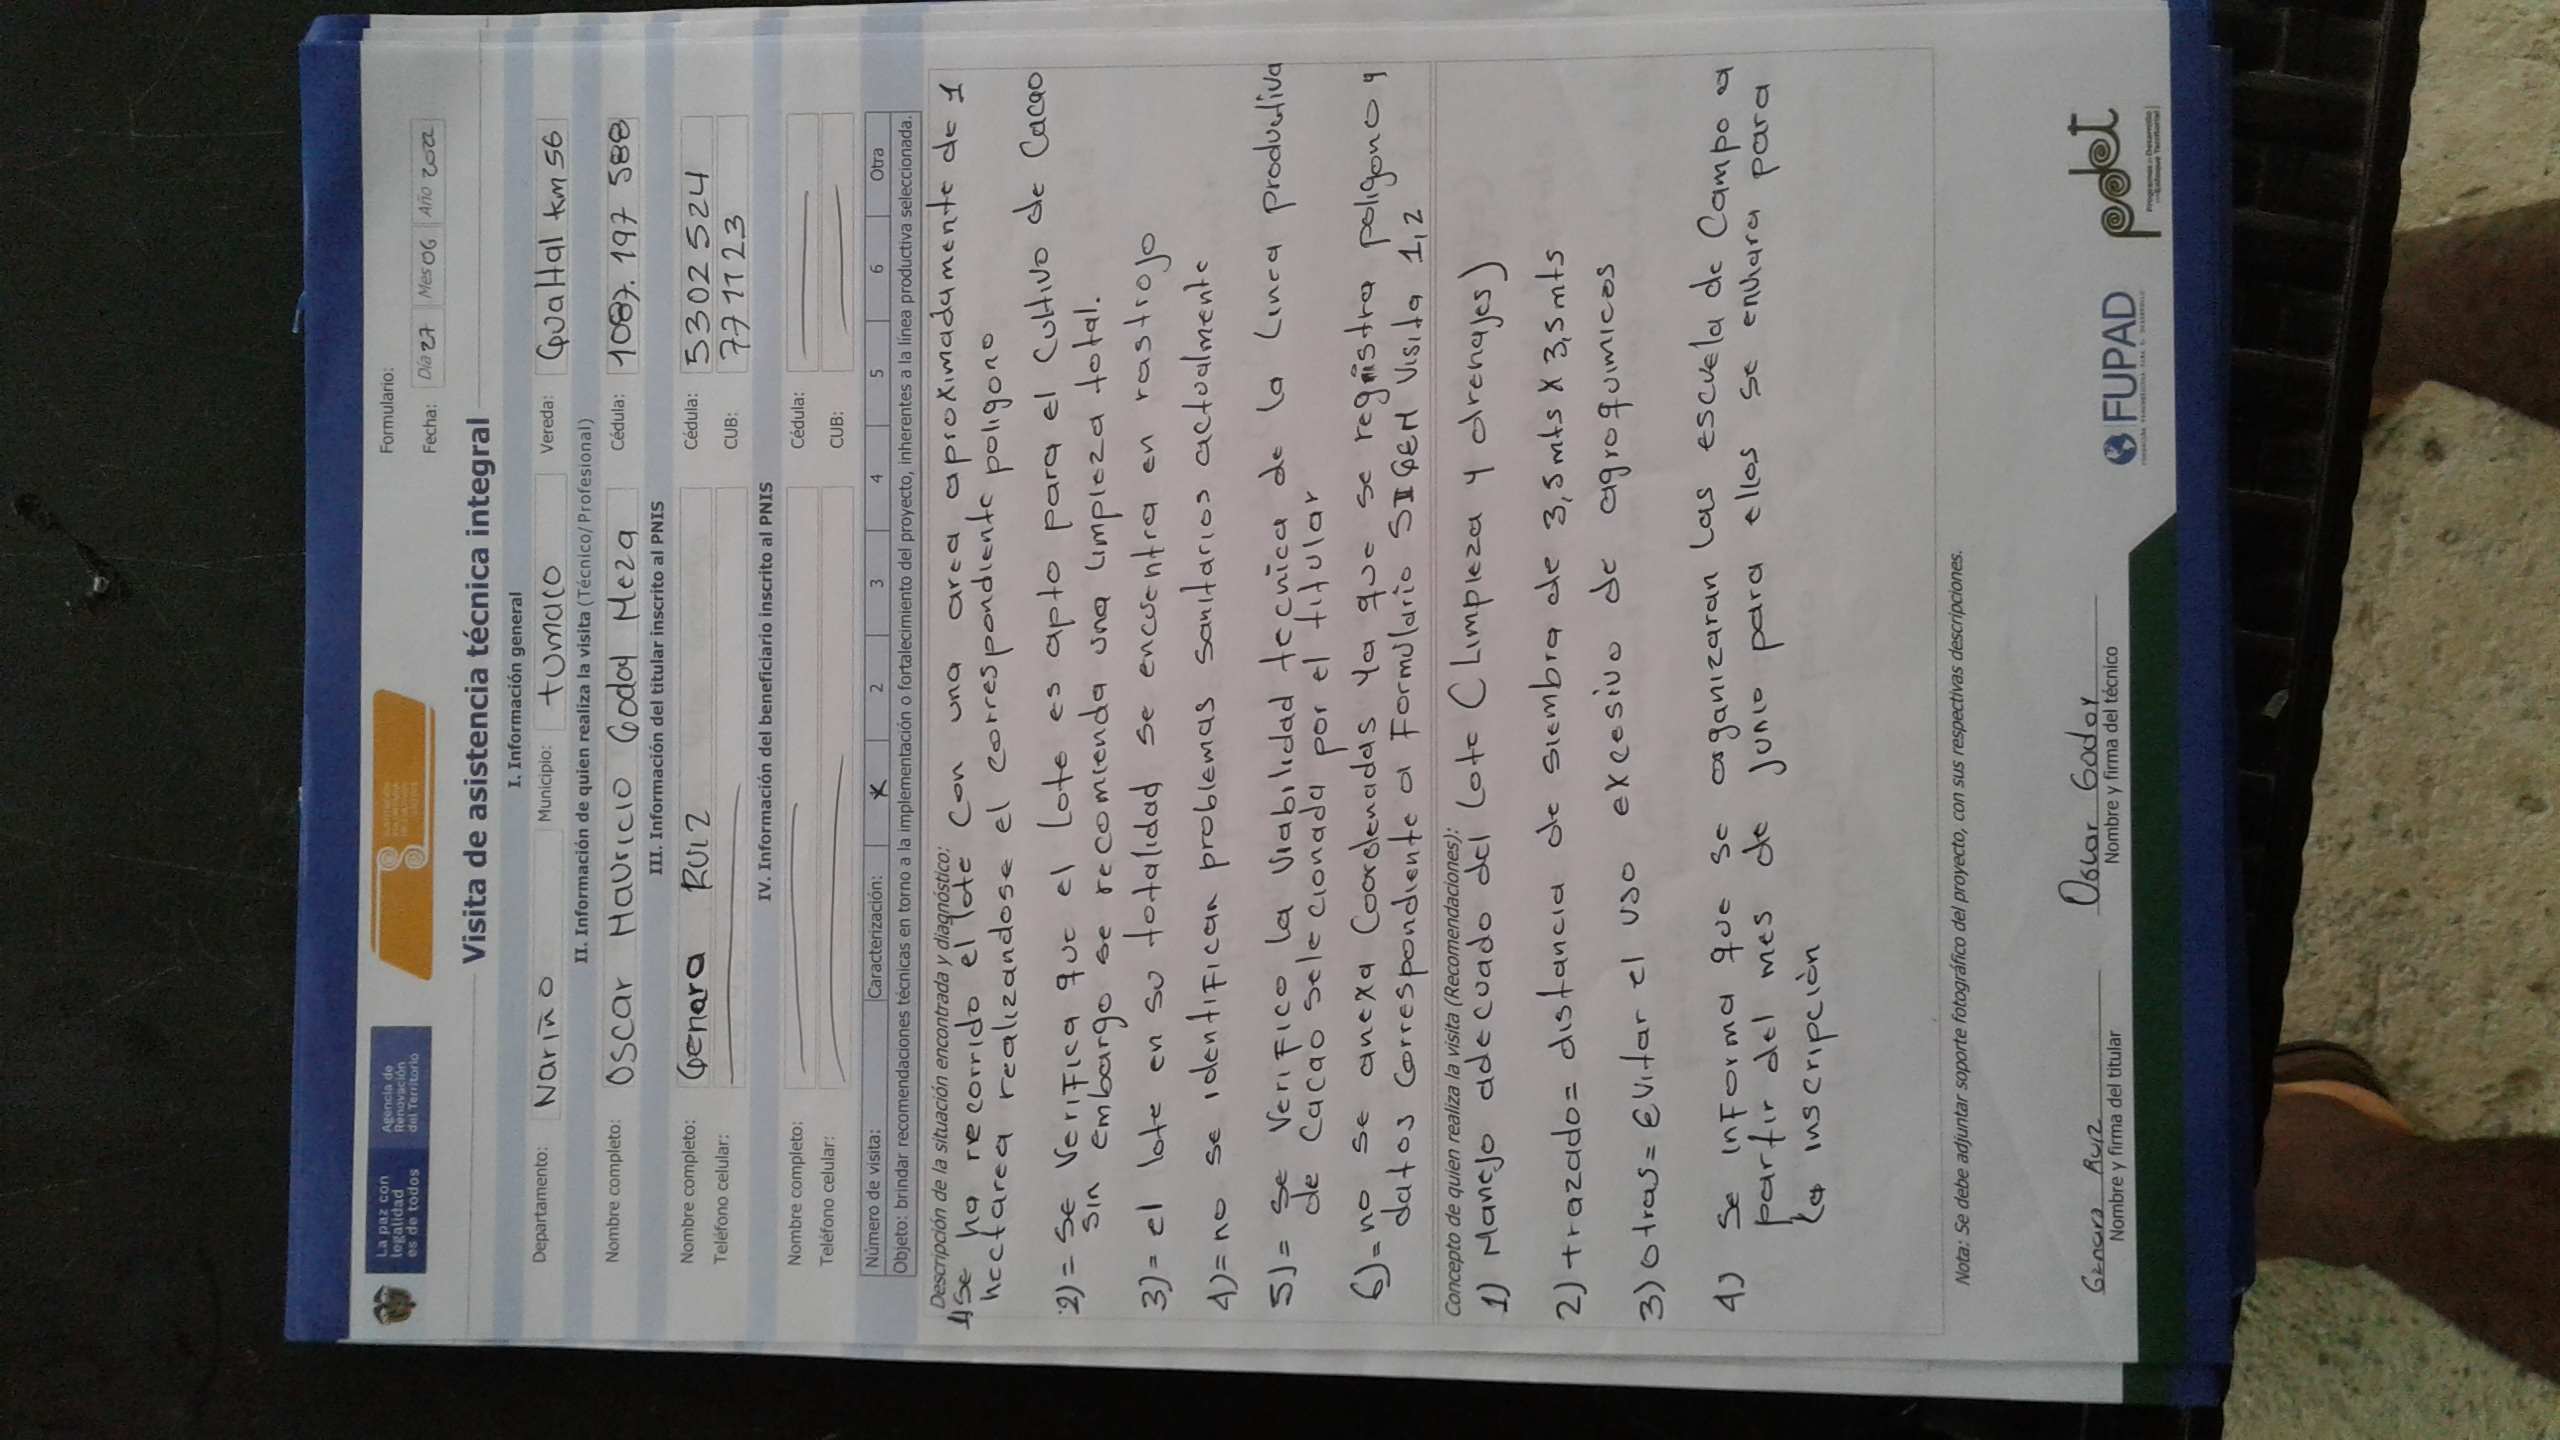 La paz con
legalidad
es de todos
Agencia de
Renovación
del Territorio
Formulario:
Fecha: Día 27 Mes 06 Año 2022
Visita de asistencia técnica integral
I. Información general
Departamento: Nariño Municipio: tumaco Vereda: Gualtal km 56
II. Información de quien realiza la visita (Técnico/ Profesional)
Nombre completo: Oscar Mauricio Godoy Meza Cédula: 1087.197 588
III. Información del titular inscrito al PNIS
Nombre completo: Genara Ruiz Cédula: 5302524
Teléfono celular: CUB: 771123
IV. Información del beneficiario inscrito al PNIS
Nombre completo: Cédula:
Teléfono celular: CUB:
Número de visita: Caracterización: X 2 3 4 5 6 Otra
Objeto: brindar recomendaciones técnicas en torno a la implementación o fortalecimiento del proyecto, inherentes a la línea productiva seleccionada.
Descripción de la situación encontrada y diagnóstico:
1) se ha recorrido el lote con una area aproximadamente de 1
hectarea realizandose el correspondiente poligono
2) = se verifica que el lote es apto para el cultivo de cacao
sin embargo se recomienda una limpieza total.
3) = el lote en su totalidad se encuentra en rastrojo
4) = no se identifican problemas sanitarios actualmente
5) = se verifico la viabilidad tecnica de la linea productiva
de cacao selecionada por el titular
6) = no se anexa coordenadas ya que se registra poligono y
datos correspondiente a formulario SIGEM visita 1,2
Concepto de quien realiza la visita (Recomendaciones):
1) Manejo adecuado del lote (limpieza y drenajes)
2) trazado = distancia de siembra de 3,5 mts X 3,5 mts
3) otras = evitar el uso excesivo de agroquimicos
4) se informa que se organizaran las escuela de campo a
partir del mes de junio para ellos se enviara para
la inscripción
Nota: Se debe adjuntar soporte fotográfico del proyecto, con sus respectivas descripciones.
Genara Ruiz
Nombre y firma del titular
Oscar Godoy
Nombre y firma del técnico
FUPAD
pdet
Programas de Desarrollo
con Enfoque Territorial